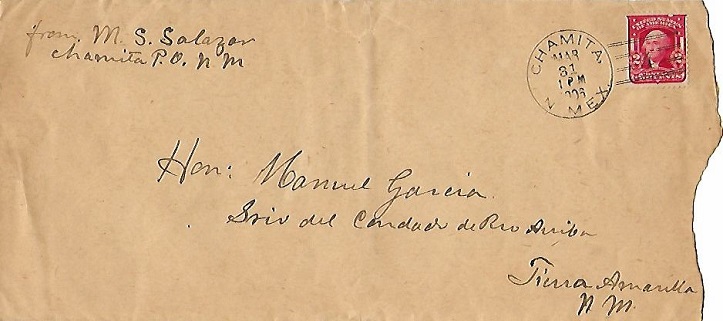 from M. S. Salazar
Chamita P.O. N M
CHAMITA,
MAR
31
1 PM
1906
N. MEX.
UNITED STATES
OF AMERICA
2 2
Hon: Manuel Garcia
Srio del Condado de Rio Arriba
Tierra Amarilla
N. M.